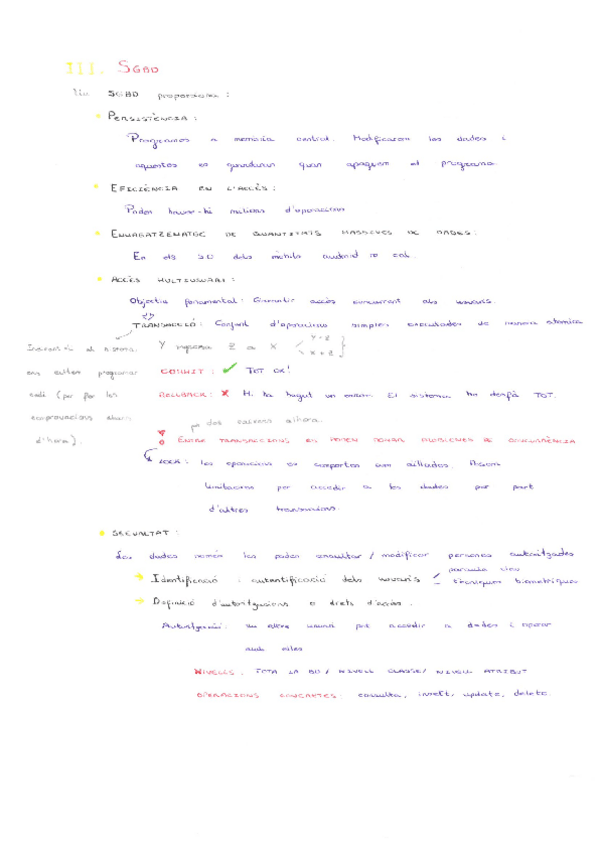 III. SGBD
Un SGBD proporciona:
PERSISTÈNCIA:
Programes a memòria central. Modificarem les dades i
aquestes es guardaran quan apaguem el programa.
EFICIÈNCIA EN L'ACCÉS:
Poden haver-hi milions d'operacions
EMMAGATZEMATGE DE QUANTITATS MASSIVES DE DADES:
En els dels mòbils android no cal.
ACCÉS MULTIUSUARI:
Objectiu fonamental: Garantir accés concurrent als usuaris.
TRANSACCIÓ: Conjunt d'operacions simples executades de manera atòmica
Y ingressa Z a X Y-Z X+Z
COMMIT: ✓ TOT OK!
ROLLBACK: ✗ Hi ha hagut un error. El sistema ho desfà TOT.
el sistema
ens altres programes
(per fer les
comprovacions abans
d'hora).
dos caixers alhora.
ENTRE TRANSACCIONS ES PODEN DONAR PROBLEMES DE CONCURRÈNCIA
LOCK: les operacions es comporten com aïllades. Posem
limitacions per accedir a les dades per part
d'altres transaccions.
SEGURETAT:
Les dades només les poden consultar / modificar persones autoritzades
→ Identificació i autentificació dels usuaris
paraula clau
tècniques biomètriques
→ Definició d'autoritzacions o drets d'accés.
Autorització: un usuari pot accedir a dades i operar
amb elles
NIVELLS: TOTA LA BD / NIVELL CLASSE / NIVELL ATRIBUT
OPERACIONS CONCRETES: consulta, insert, update, delete.